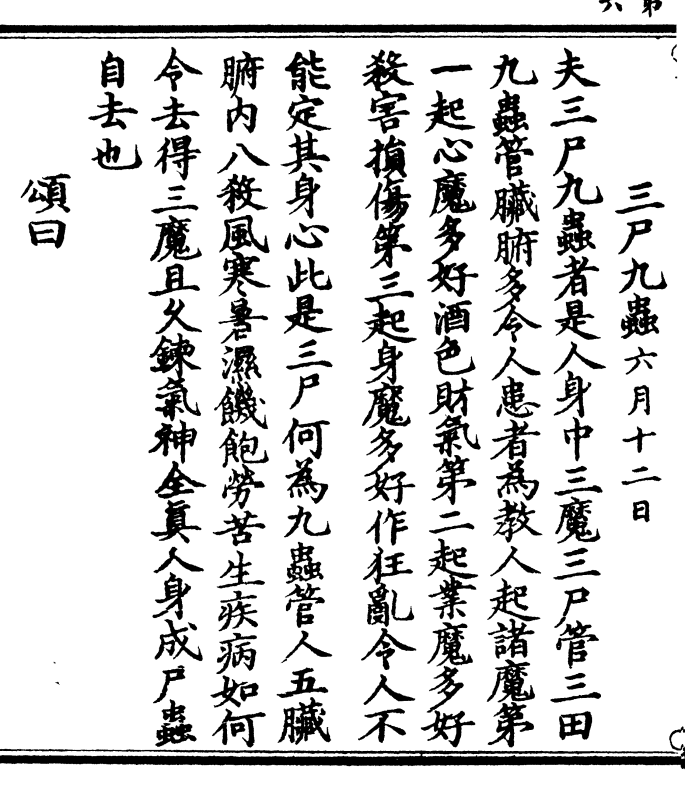 第六
三尸九蟲六月十二日
夫三尸九蟲者是人身中三魔三尸管三田
九蟲管臟腑多令人患者為教人起諸魔第
一起心魔多好酒色財氣第二起業魔多好
殺害損傷第三起身魔多好作狂亂令人不
能定其身心此是三尸何為九蟲管人五臟
腑內八殺風寒暑濕饑飽勞苦生疾病如何
令去得三魔且久鍊氣神全真人身成尸蟲
自去也
頌曰